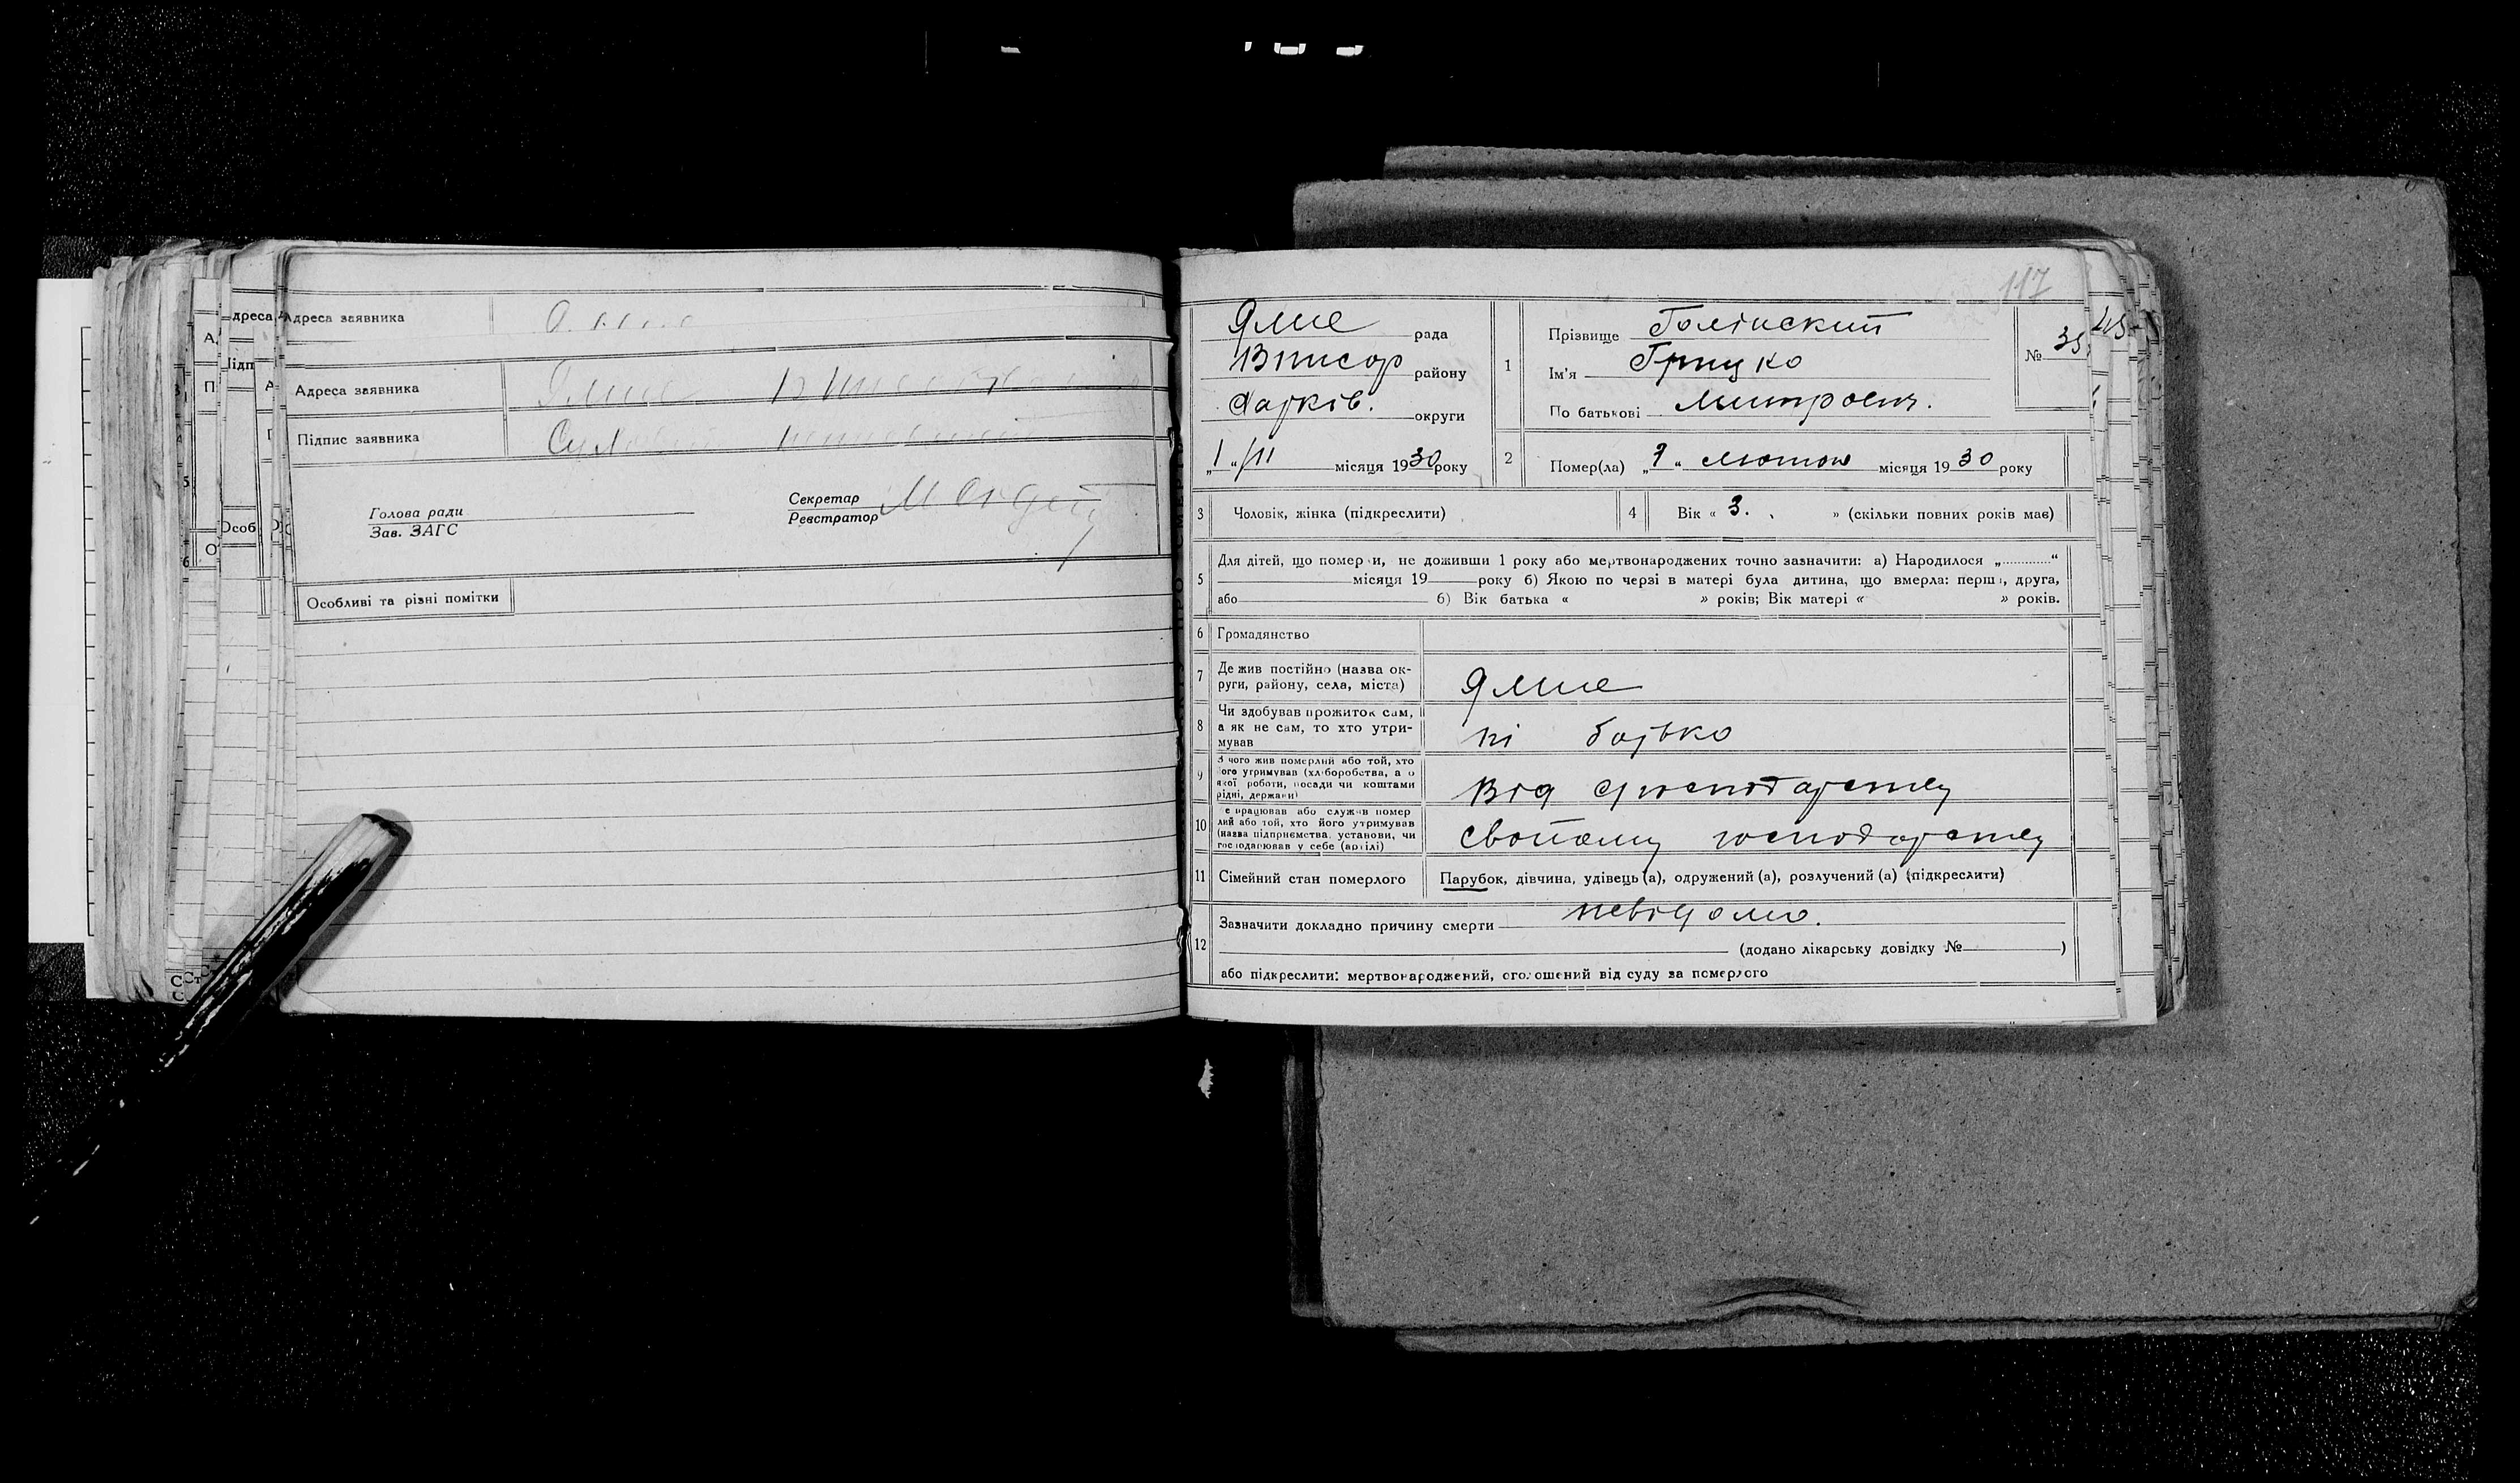 Адреса заявника
Адреса заявника
Підпис заявника
Голова ради
Зав. ЗАГС
Секретар
Реєстратор
Особливі та різні помітки
117
Ямне рада
району
Харків. округи
„1“ /II місяця 1930 року
1 Прізвище Голінский
Ім'я Грицко
По батькові Митрович.
№ 35
2 Помер(ла) „ “ лютого місяця 1930 року
3 Чоловік, жінка (підкреслити)
4 Вік « 3. » (скільки повних років має)
5 Для дітей, що померли, не доживши 1 року або мертвонароджених точно зазначити: а) Народилося „ “
місяця 19 року б) Якою по черзі в матері була дитина, що вмерла: перша, друга,
або б) Вік батька « » років; Вік матері « » років.
6 Громадянство
7 Де жив постійно (назва ок-
руги, району, села, міста) Ямне
8 Чи здобував прожиток сам,
а як не сам, то хто утри-
мував ні батько
9 З чого жив померлий або той, хто
його утримував (хліборобства, а о
якої роботи, посади чи коштами
рідні, держави) від господарству
10 е працював або служив помер
лий або той, хто його утримував
(назва підприємства, установи, чи
господарював у себе (артілі) своїому господарству
11 Сімейний стан померлого Парубок, дівчина, удівець (а), одружений (а), розлучений (а) (підкреслити)
12 Зазначити докладно причину смерти невідомо.
(додано лікарську довідку № )
або підкреслити: мертвонароджений, оголошений від суду за померлого